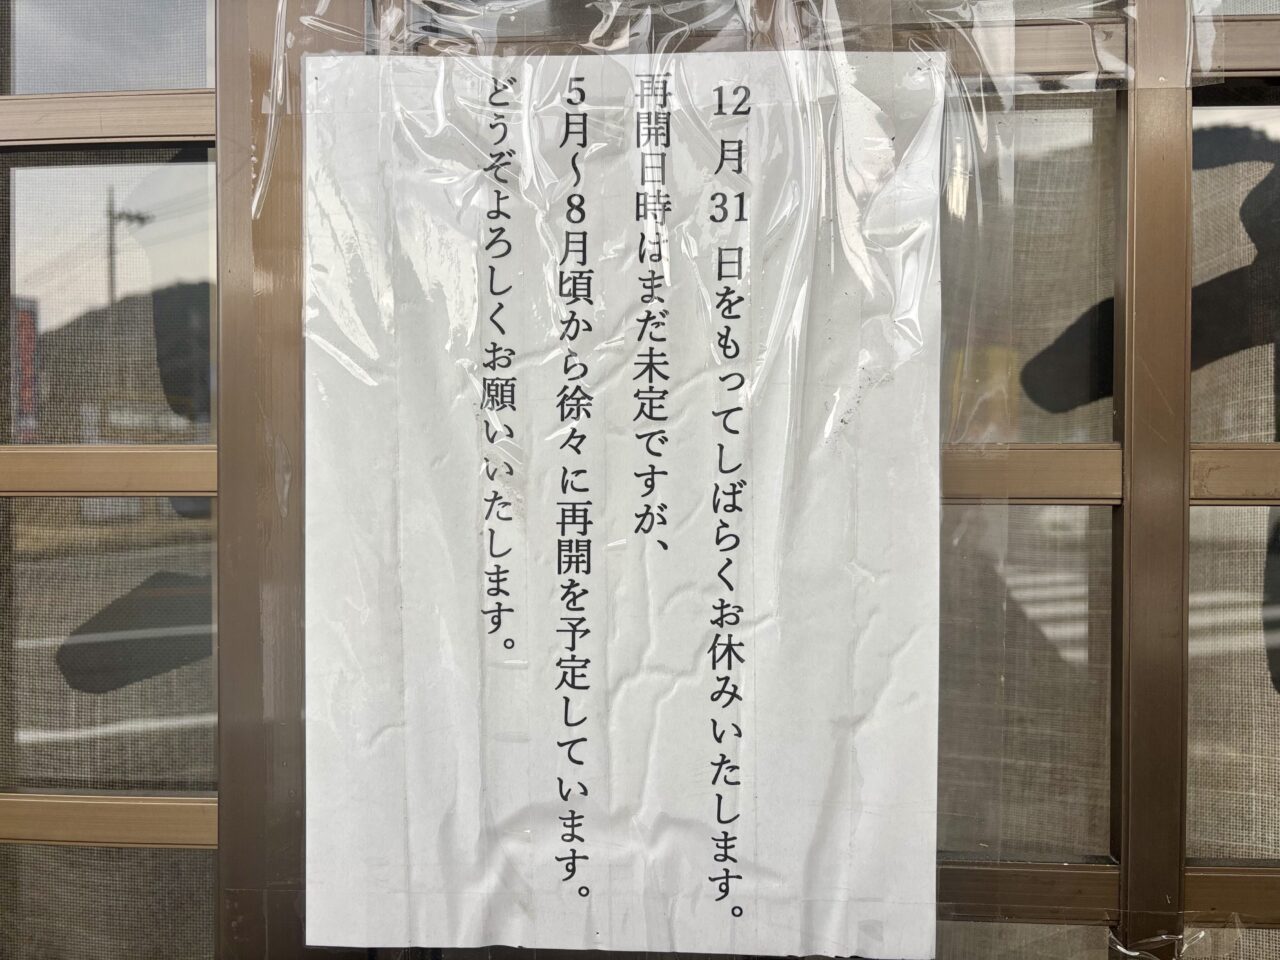 12月31日をもってしばらくお休みいたします。
再開日時はまだ未定ですが、
5月〜8月頃から徐々に再開を予定しています。
どうぞよろしくお願いいたします。